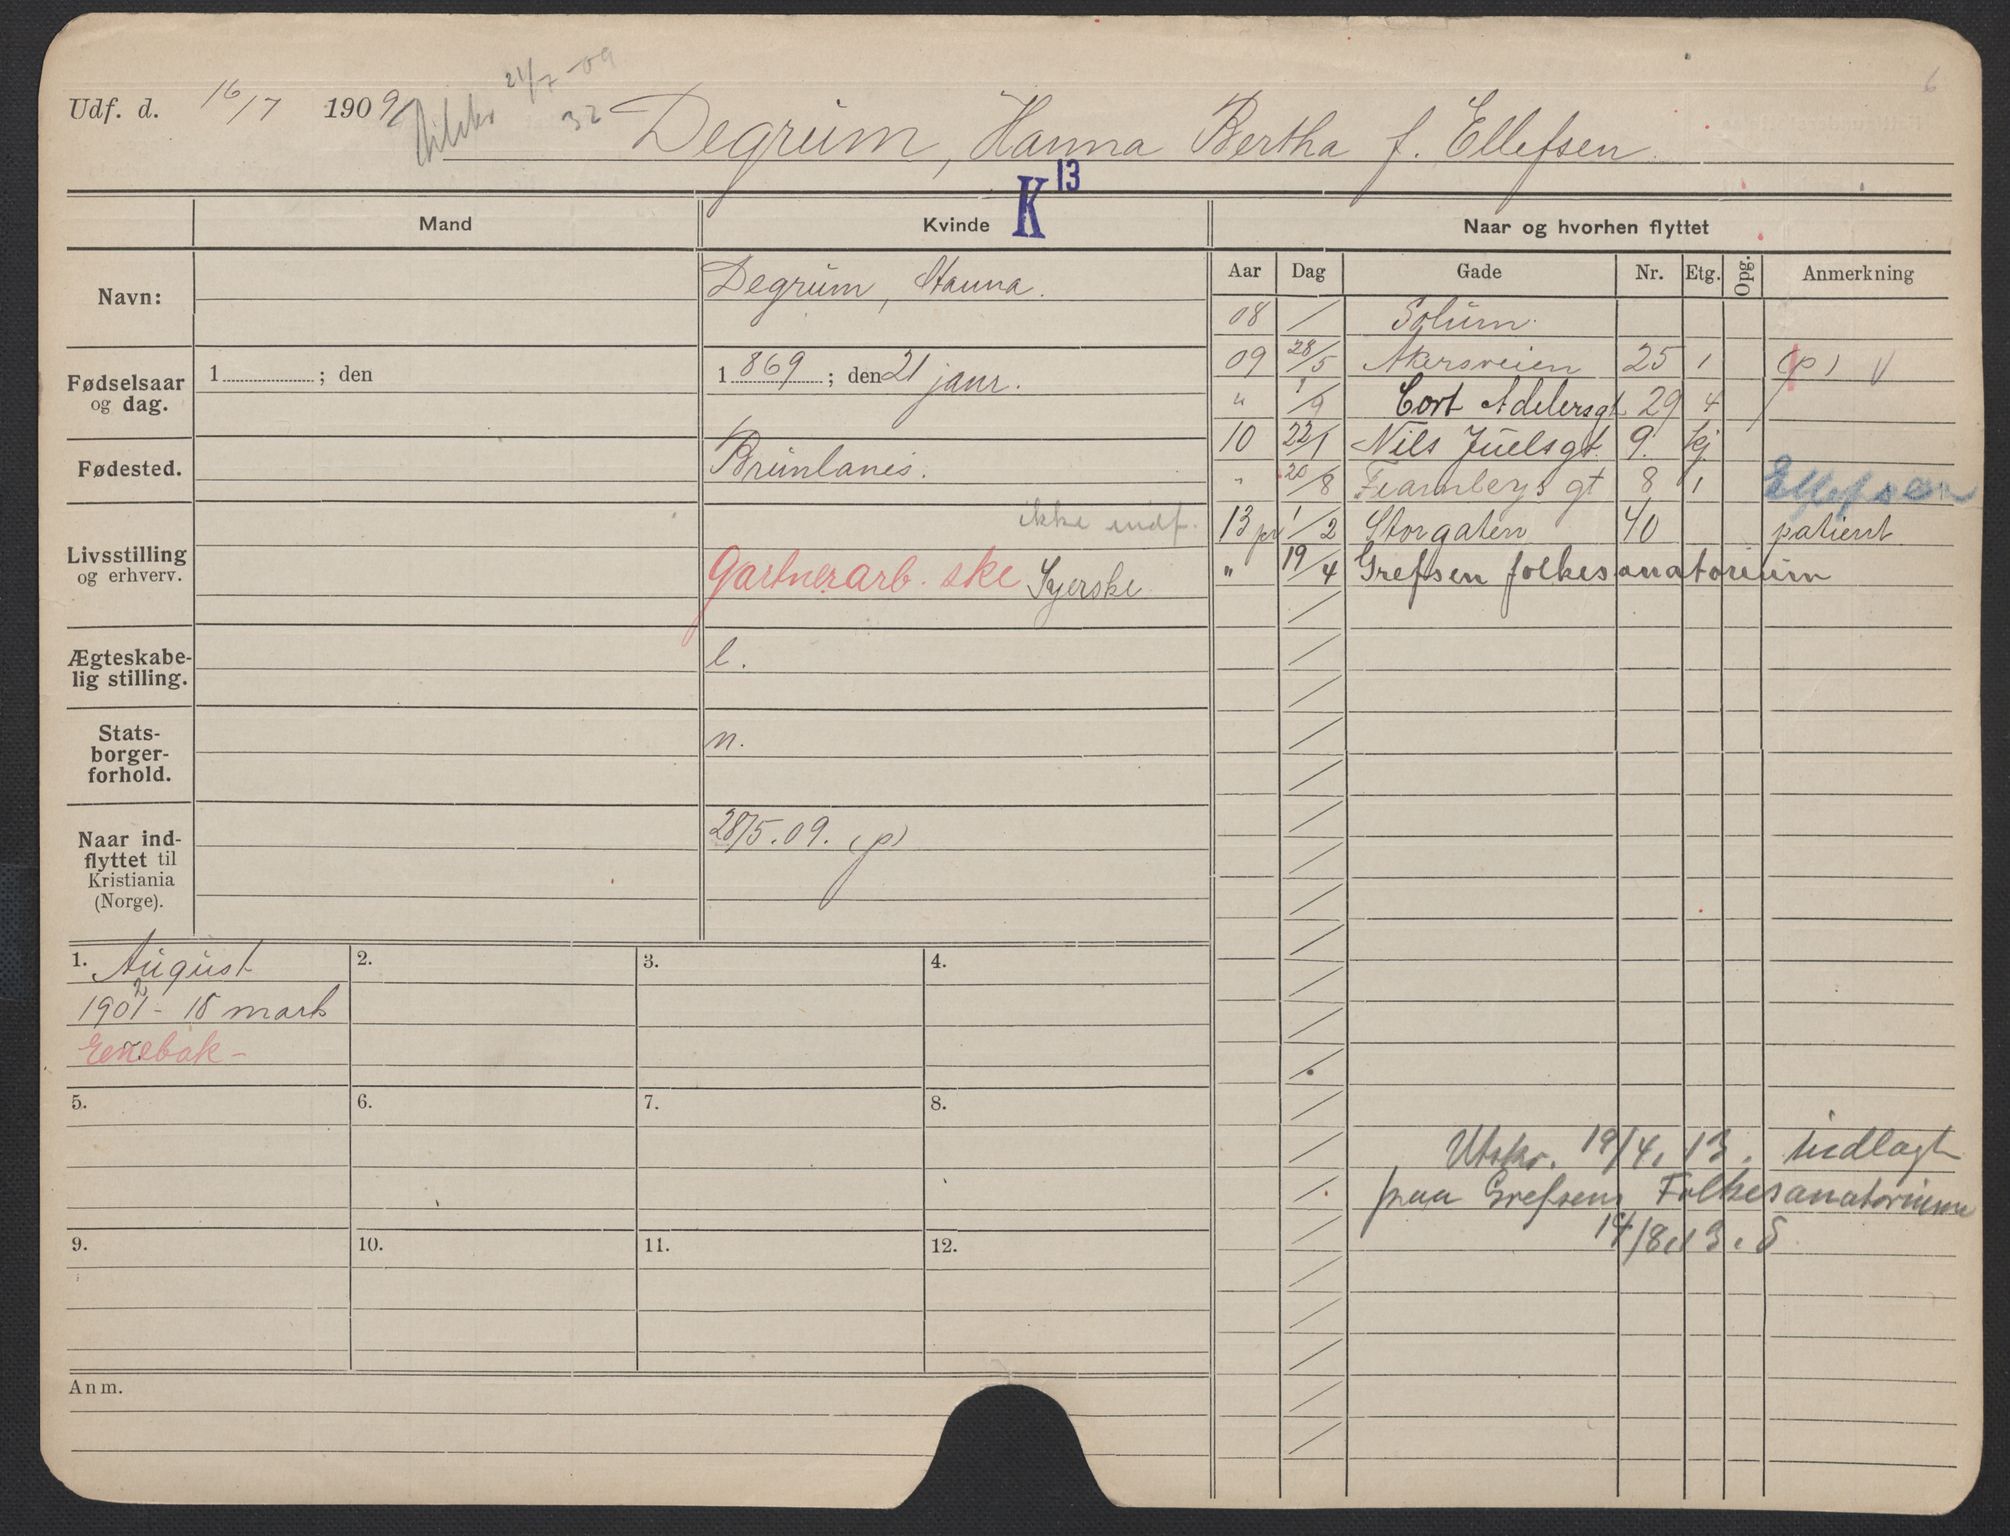 Udf. d. 16/7 1909 21/7-09
32
Degrum, Hanna Bertha f. Ellefsen
6
K 13
Mand Kvinde Naar og hvorhen flyttet
Aar Dag Gade Nr. Etg. Opg. Anmerkning
Navn: Degrum, Hanna.
Fødselsaar og dag. 1 ; den 1869 ; den 21 januar.
Fødested. Brunlanes.
ikke indf.
Livsstilling og erhverv. Gartnerarb.ske Syerske
Ægteskabelig stilling. e.
Statsborgerforhold. n.
Naar indflyttet til Kristiania (Norge). 28/5.09. (p)
08 / Solum.
09 28/5 Akersveien 25 1 (p) v
" 1/9 Cort Adelersgt. 29 4
10 22/1 Nils Juelsgt. 9. kj
" 20/8 Fearnleys gt 8 1 Ellefsen
13 pr 1/2 Storgaten 40 patient
" 19/4 Grefsen folkesanatorium
Utskr. 19/4. 13. indlagt
paa Grefsens Folkesanatorium
14/8.13. S
1. August
1902 - 18 mars
Enebak -
2.
3.
4.
5.
6.
7.
8.
9.
10.
11.
12.
Anm.